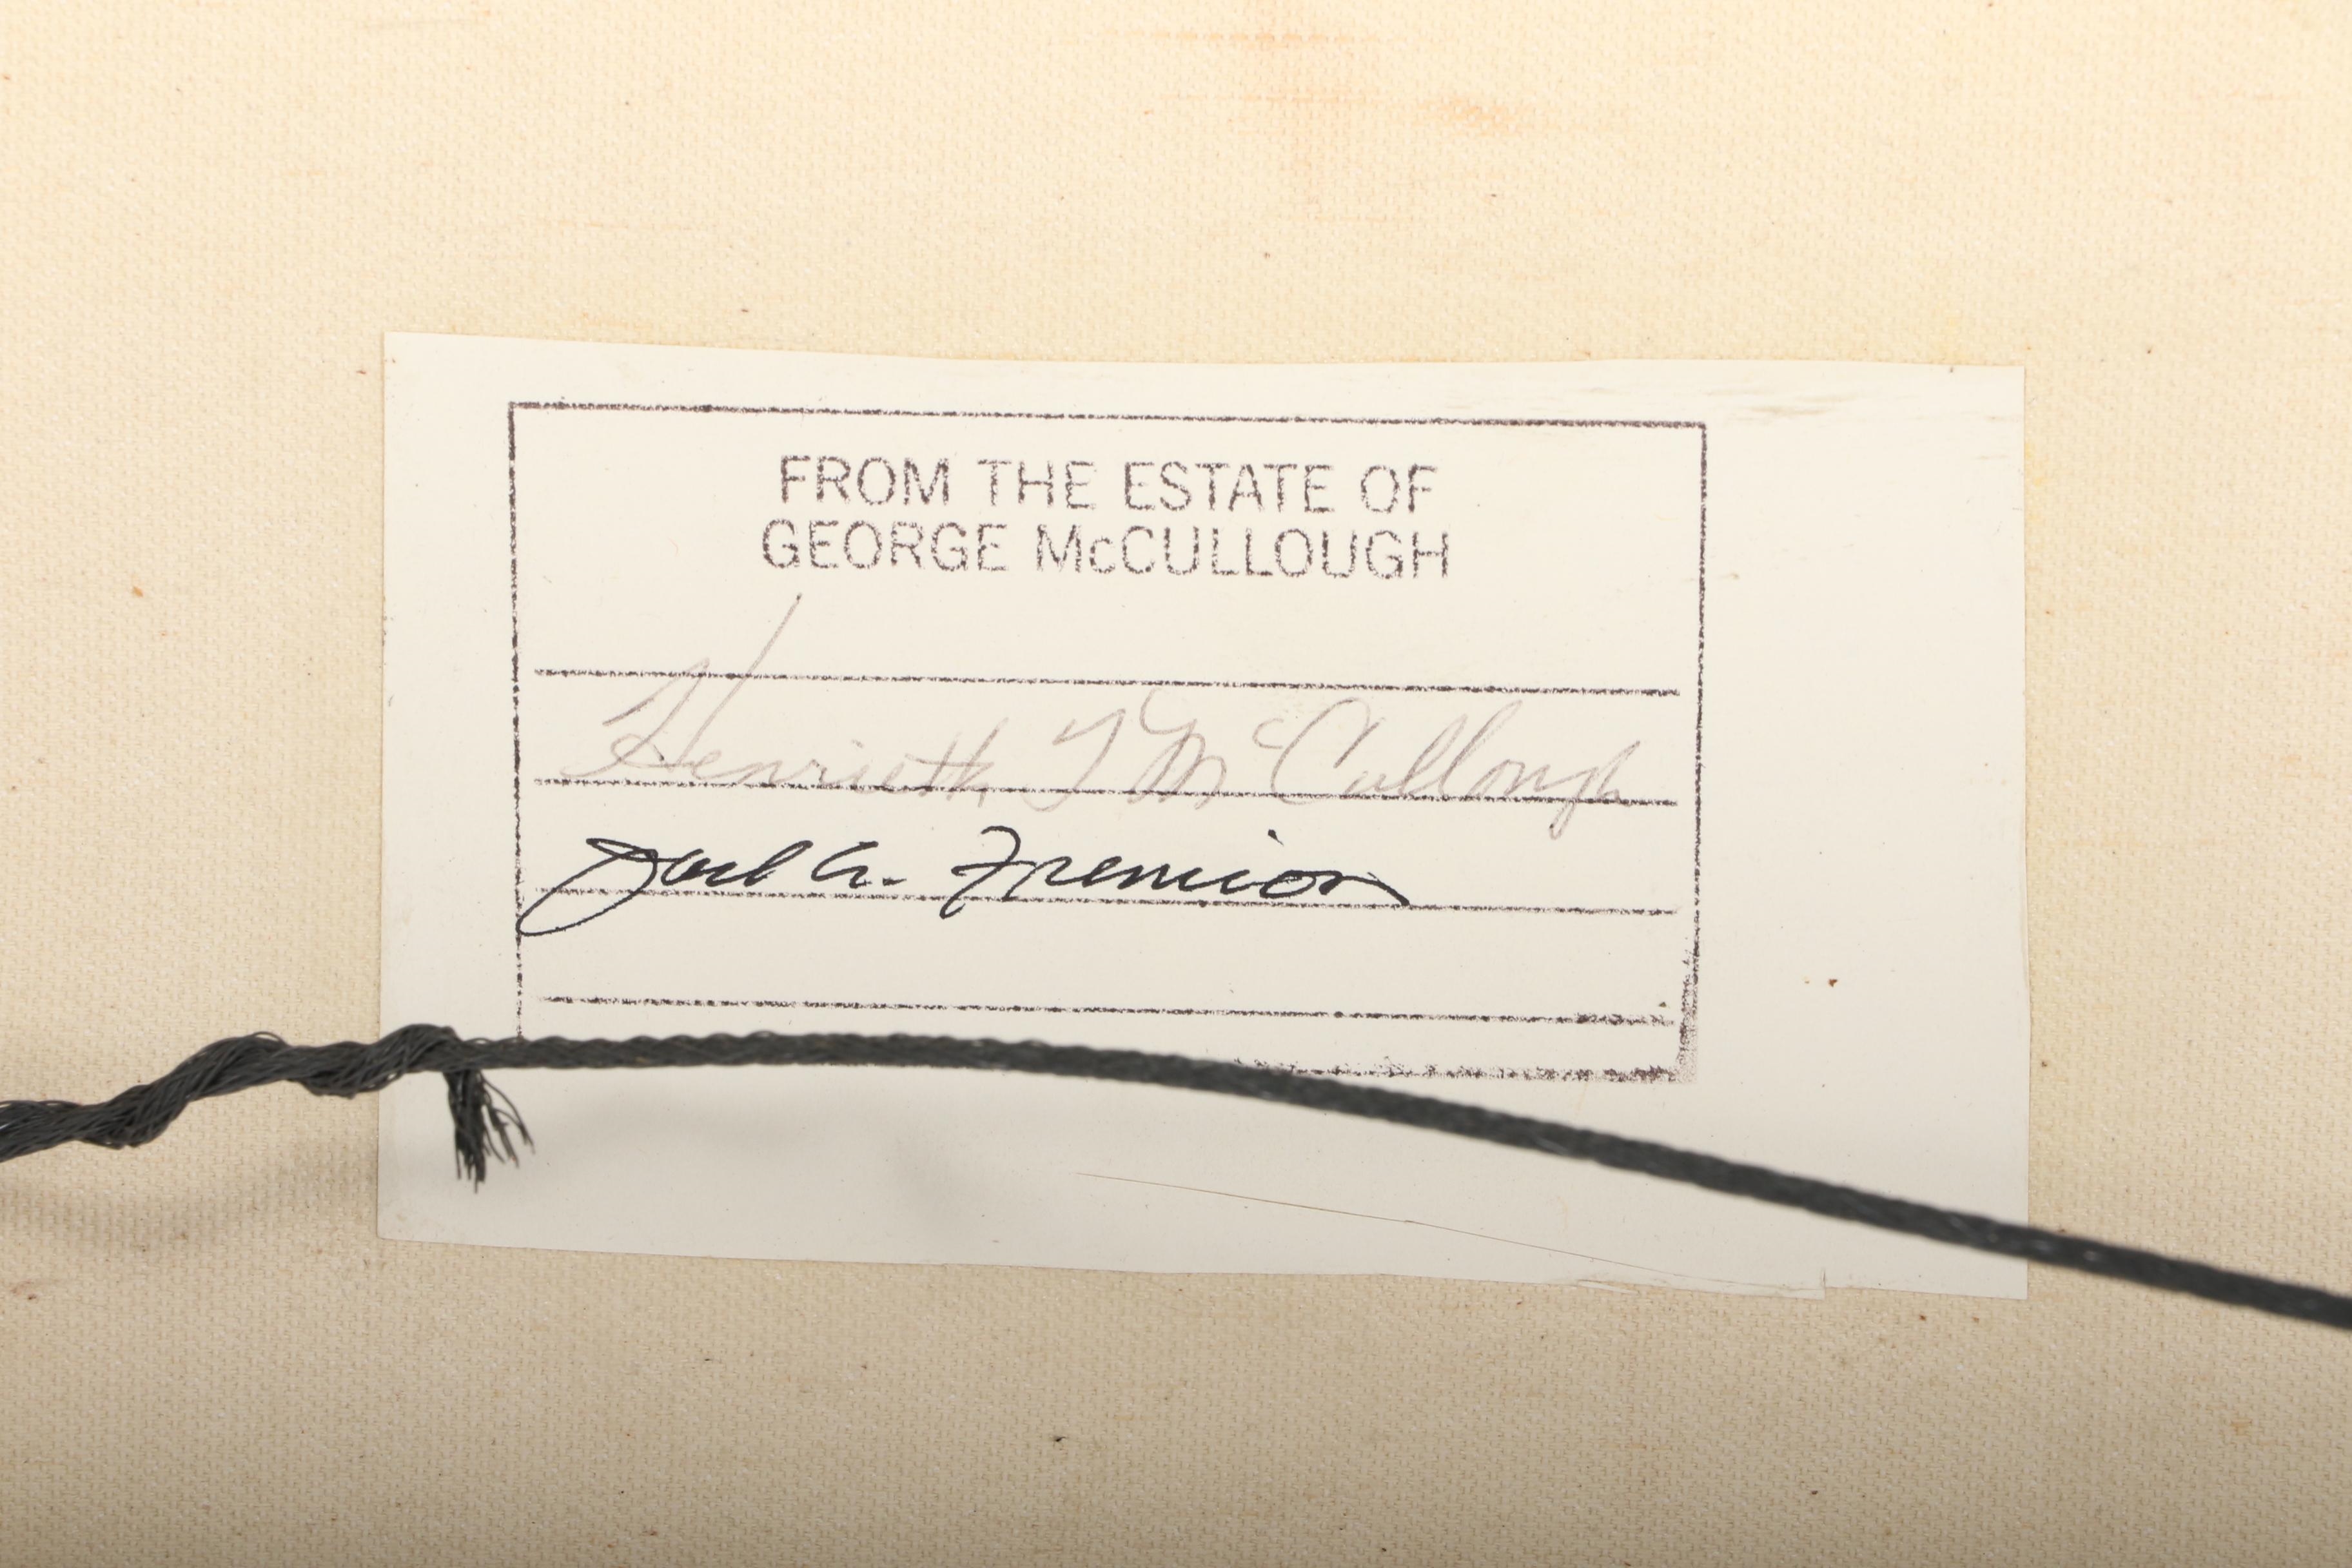 FROM THE ESTATE OF
GEORGE McCULLOUGH
Henrietta McCullough
Fremion